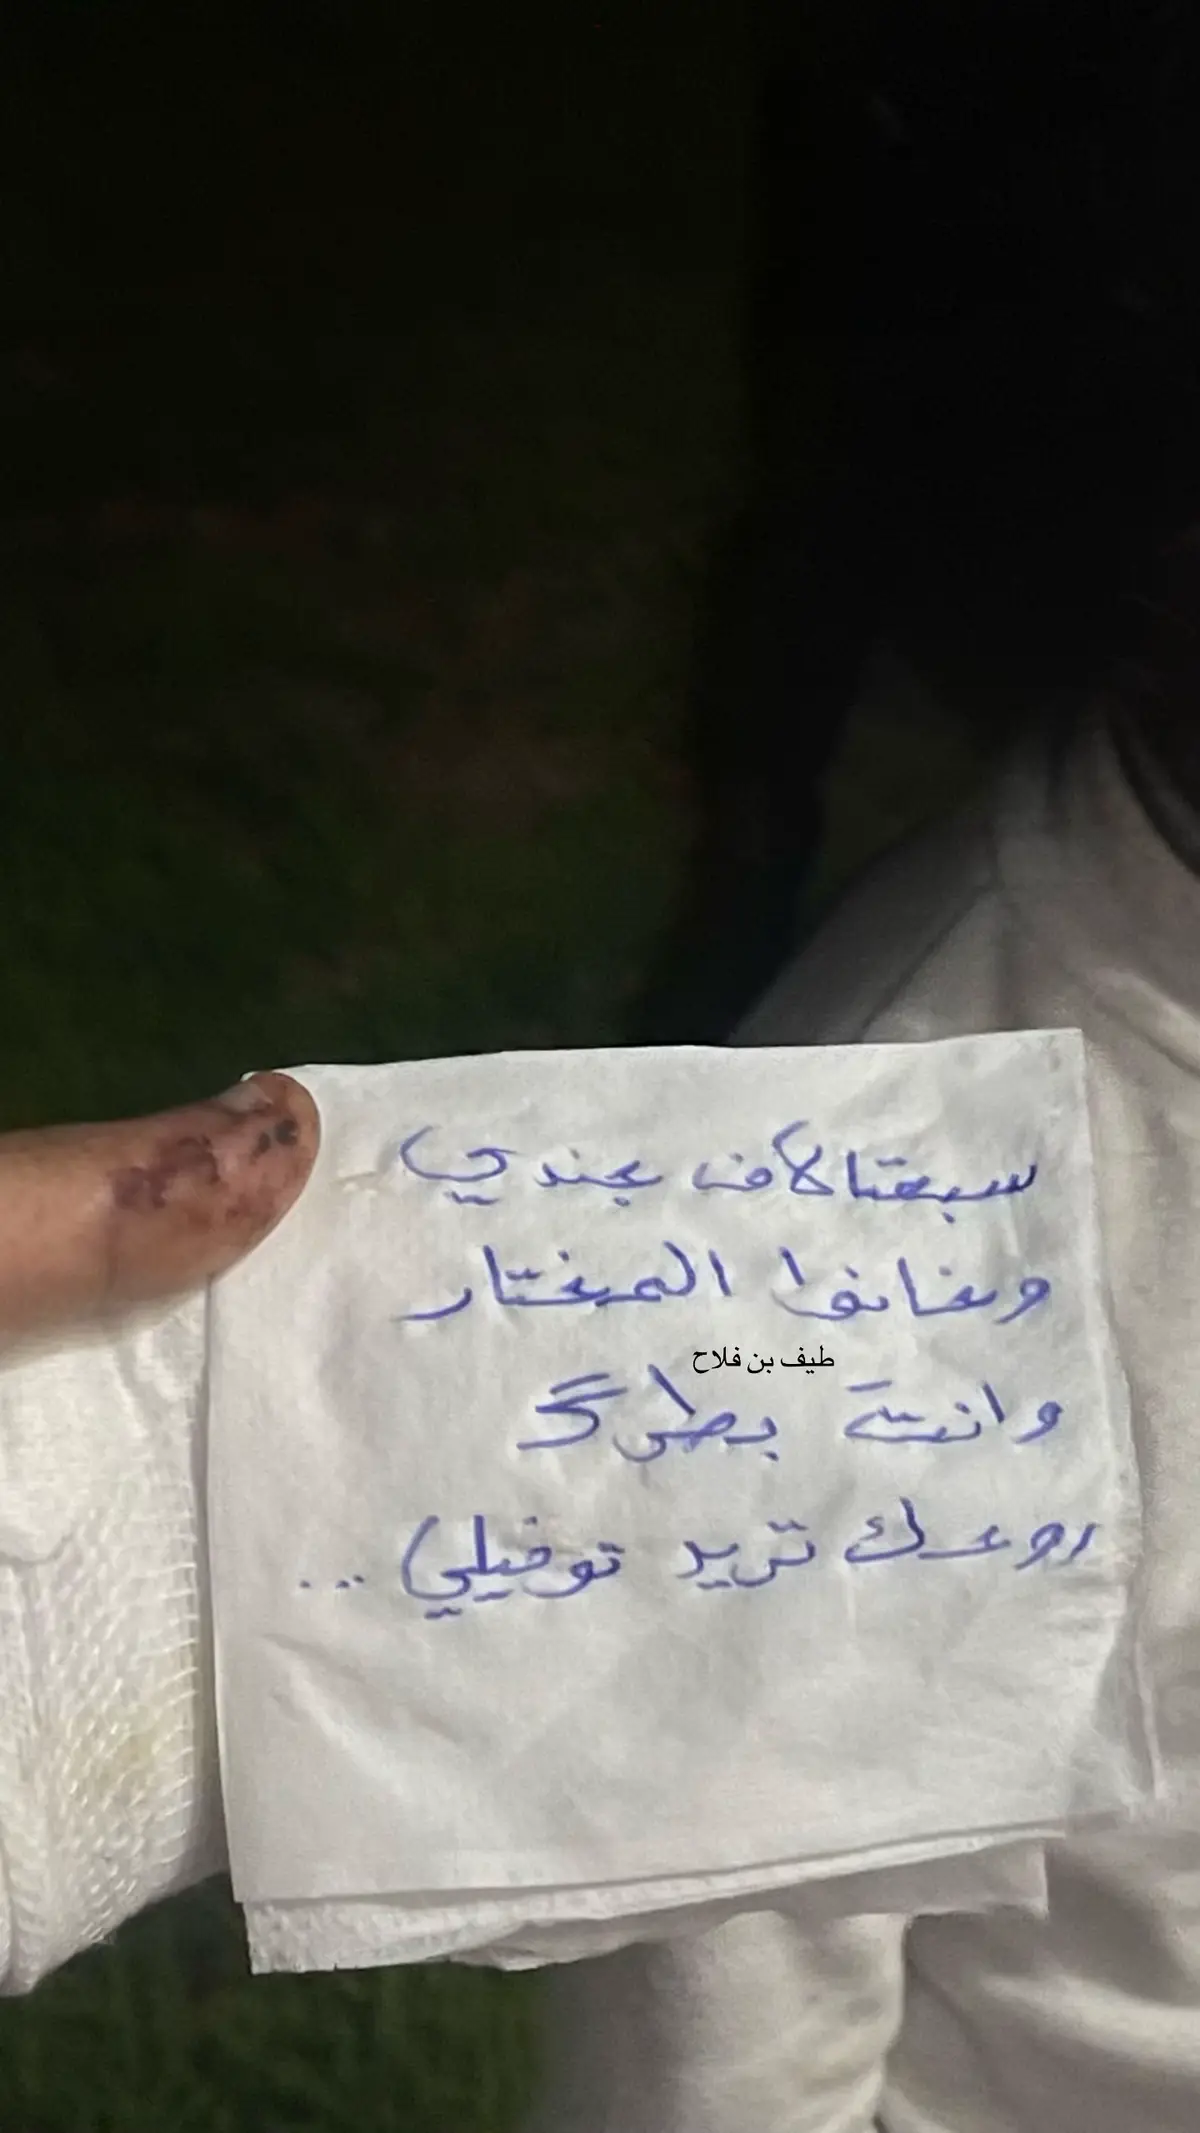 سبعتالاف جندي
وخانوا المختار
طيف بن فلاح
وانتَ بطرگ
روحك تريد توفيلي ...